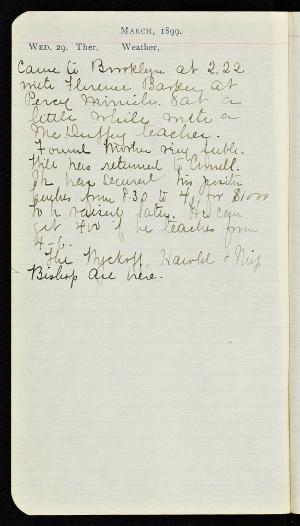 MARCH, 1899.
WED. 29. Ther, Weather,
Came to Brooklyn at 2.22
with Florence Barkey at
Percy Sat a
little while with a
Mc Duffey teacher.
Found Mother very feeble.
Will has returned to Cornell.
He has secured his position
from 8.30 to for $1000
to be raised later. He can
get 400 if he teaches from
4-6.
The Wyckoff, Harold & Miss
Bishop are here.